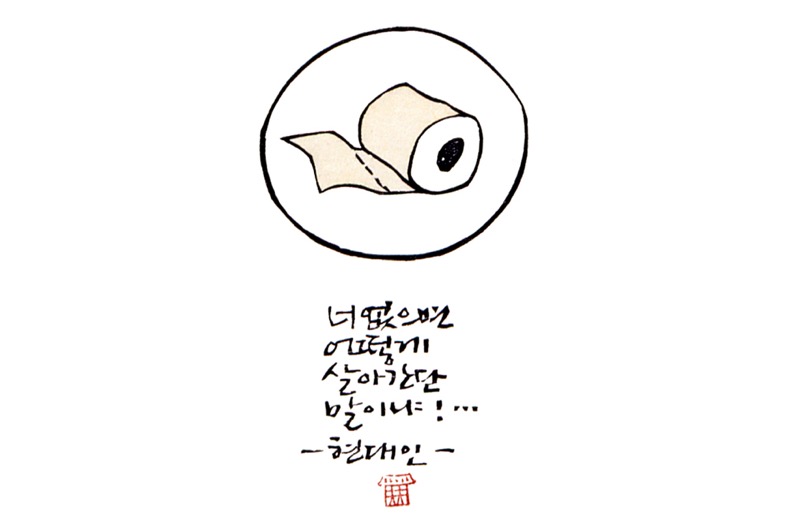 너 없으면
어떻게
살아간단
말이냐!...
-현대인-